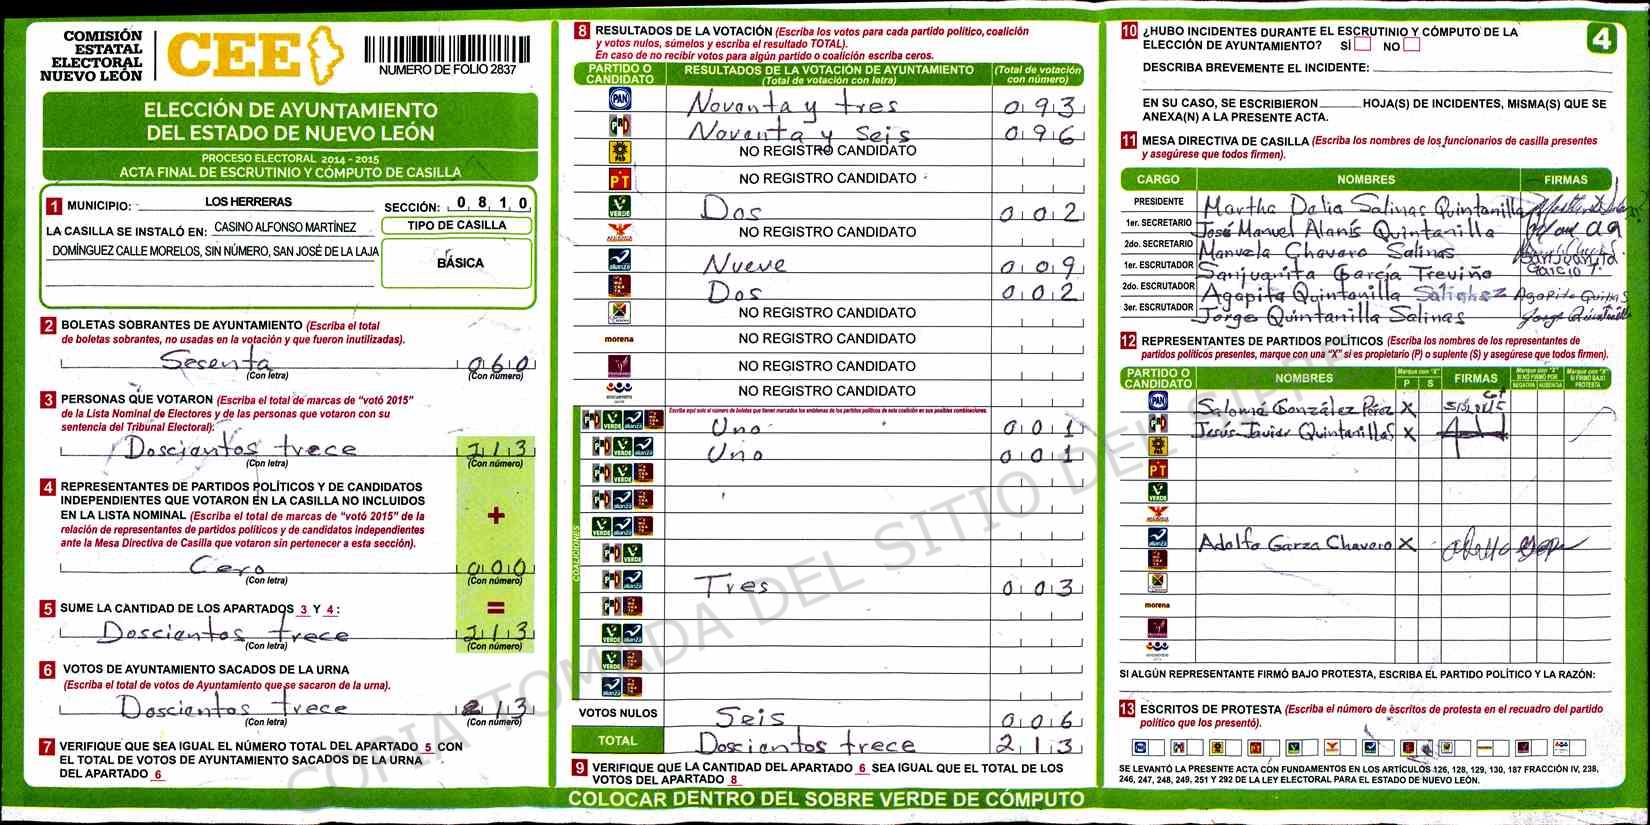 COMISIÓN
ESTATAL
ELECTORAL
NUEVO LEÓN
CEE
NUMERO DE FOLIO 2837
ELECCIÓN DE AYUNTAMIENTO
DEL ESTADO DE NUEVO LEÓN
PROCESO ELECTORAL 2014 - 2015
ACTA FINAL DE ESCRUTINIO Y CÓMPUTO DE CASILLA
1 MUNICIPIO: LOS HERRERAS SECCIÓN: 0 8 1 0
LA CASILLA SE INSTALÓ EN: CASINO ALFONSO MARTÍNEZ
DOMÍNGUEZ CALLE MORELOS, SIN NÚMERO, SAN JOSÉ DE LA LAJA
TIPO DE CASILLA
BÁSICA
2 BOLETAS SOBRANTES DE AYUNTAMIENTO (Escriba el total
de boletas sobrantes, no usadas en la votación y que fueron inutilizadas).
Sesenta 060
(Con letra) (Con número)
3 PERSONAS QUE VOTARON (Escriba el total de marcas de "votó 2015"
de la Lista Nominal de Electores y de las personas que votaron con su
sentencia del Tribunal Electoral).
Doscientos trece 213
(Con letra) (Con número)
4 REPRESENTANTES DE PARTIDOS POLÍTICOS Y DE CANDIDATOS
INDEPENDIENTES QUE VOTARON EN LA CASILLA NO INCLUIDOS
EN LA LISTA NOMINAL (Escriba el total de marcas de "votó 2015" de la
relación de representantes de partidos políticos y de candidatos independientes
ante la Mesa Directiva de Casilla que votaron sin pertenecer a esta sección).
+
Cero 000
(Con letra) (Con número)
5 SUME LA CANTIDAD DE LOS APARTADOS 3 Y 4: =
Doscientos trece 213
(Con letra) (Con número)
6 VOTOS DE AYUNTAMIENTO SACADOS DE LA URNA
(Escriba el total de votos de Ayuntamiento que se sacaron de la urna).
Doscientos trece 213
(Con letra) (Con número)
7 VERIFIQUE QUE SEA IGUAL EL NÚMERO TOTAL DEL APARTADO 5 CON
EL TOTAL DE VOTOS DE AYUNTAMIENTO SACADOS DE LA URNA
DEL APARTADO 6
8 RESULTADOS DE LA VOTACIÓN (Escriba los votos para cada partido político, coalición
y votos nulos, súmelos y escriba el resultado TOTAL).
En caso de no recibir votos para algún partido o coalición escriba ceros.
PARTIDO O CANDIDATO
RESULTADOS DE LA VOTACIÓN DE AYUNTAMIENTO
(Total de votación con letra)
(Total de votación con número)
PAN Noventa y tres 093
PRI Noventa y Seis 096
PRD NO REGISTRO CANDIDATO
PT NO REGISTRO CANDIDATO
VERDE Dos 002
NO REGISTRO CANDIDATO
alianza Nueve 009
Dos 002
NO REGISTRO CANDIDATO
morena NO REGISTRO CANDIDATO
NO REGISTRO CANDIDATO
encuentro NO REGISTRO CANDIDATO
COALICIONES
Escriba aquí solo el número de boletas que tienen marcados los emblemas de los partidos políticos de esta coalición en sus posibles combinaciones.
Uno 001
Uno 001
Tres 003
VOTOS NULOS Seis 006
TOTAL Doscientos trece 213
9 VERIFIQUE QUE LA CANTIDAD DEL APARTADO 6 SEA IGUAL QUE EL TOTAL DE LOS
VOTOS DEL APARTADO 8
COLOCAR DENTRO DEL SOBRE VERDE DE CÓMPUTO
4
10 ¿HUBO INCIDENTES DURANTE EL ESCRUTINIO Y CÓMPUTO DE LA
ELECCIÓN DE AYUNTAMIENTO? SÍ NO
DESCRIBA BREVEMENTE EL INCIDENTE:
EN SU CASO, SE ESCRIBIERON HOJA(S) DE INCIDENTES, MISMA(S) QUE SE
ANEXA(N) A LA PRESENTE ACTA.
11 MESA DIRECTIVA DE CASILLA (Escriba los nombres de los funcionarios de casilla presentes
y asegúrese que todos firmen).
CARGO NOMBRES FIRMAS
PRESIDENTE Martha Dalia Salinas Quintanilla
1er. SECRETARIO José Manuel Alanís Quintanilla
2do. SECRETARIO Manuela Chavero Salinas
1er. ESCRUTADOR Sanjuanita García Treviño Sanjuanita García T.
2do. ESCRUTADOR Agapita Quintanilla Salinas
3er. ESCRUTADOR Jorge Quintanilla Salinas Jorge Quintanilla
12 REPRESENTANTES DE PARTIDOS POLÍTICOS (Escriba los nombres de los representantes de
partidos políticos presentes, marque con una "X" si es propietario (P) o suplente (S) y asegúrese que todos firmen).
PARTIDO O CANDIDATO
NOMBRES
Marque con "X"
P S
FIRMAS
Marque con "X" SI NO FIRMÓ POR
NEGATIVA AUSENCIA
Marque con "X" SI FIRMÓ BAJO PROTESTA
PAN Salomé González Pérez X
PRI Jesús Javier Quintanilla S X
PRD
PT
VERDE
alianza Adolfo Garza Chavero X
morena
SI ALGÚN REPRESENTANTE FIRMÓ BAJO PROTESTA, ESCRIBA EL PARTIDO POLÍTICO Y LA RAZÓN:
13 ESCRITOS DE PROTESTA (Escriba el número de escritos de protesta en el recuadro del partido
político que los presentó).
SE LEVANTÓ LA PRESENTE ACTA CON FUNDAMENTOS EN LOS ARTÍCULOS 126, 128, 129, 130, 187 FRACCIÓN IV, 238,
246, 247, 248, 249, 251 Y 292 DE LA LEY ELECTORAL PARA EL ESTADO DE NUEVO LEÓN.
COPIA TOMADA DEL SITIO DEL SIPRE